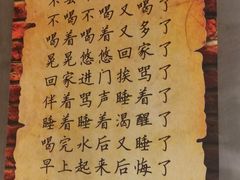 不喝不喝又喝了
喝着喝着喝多了
晃晃悠悠回家了
回家进门挨骂了
伴着骂声睡着了
睡着睡着渴醒了
喝完水后又睡了
早上起来后悔了